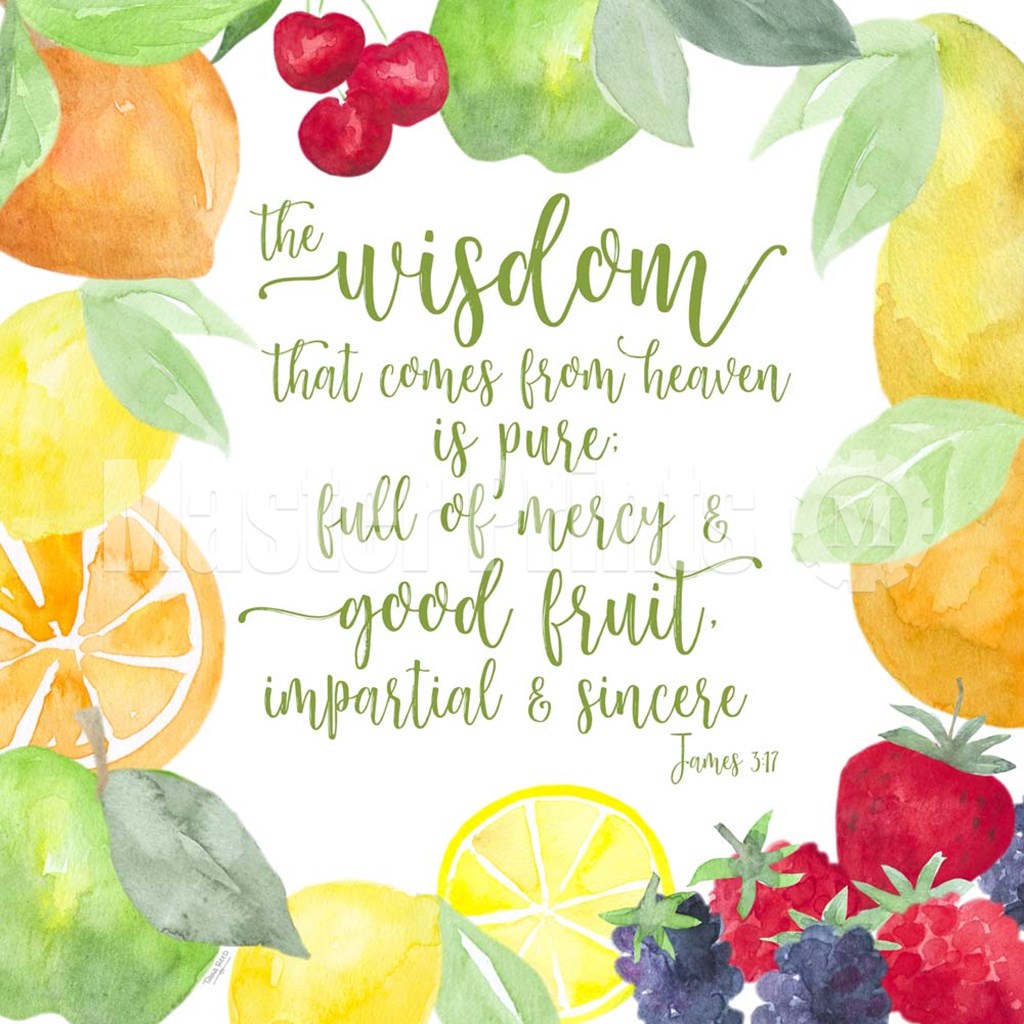 the wisdom
that comes from heaven
is pure;
full of mercy &
good fruit,
impartial & sincere
James 3:17
MasterPrints M